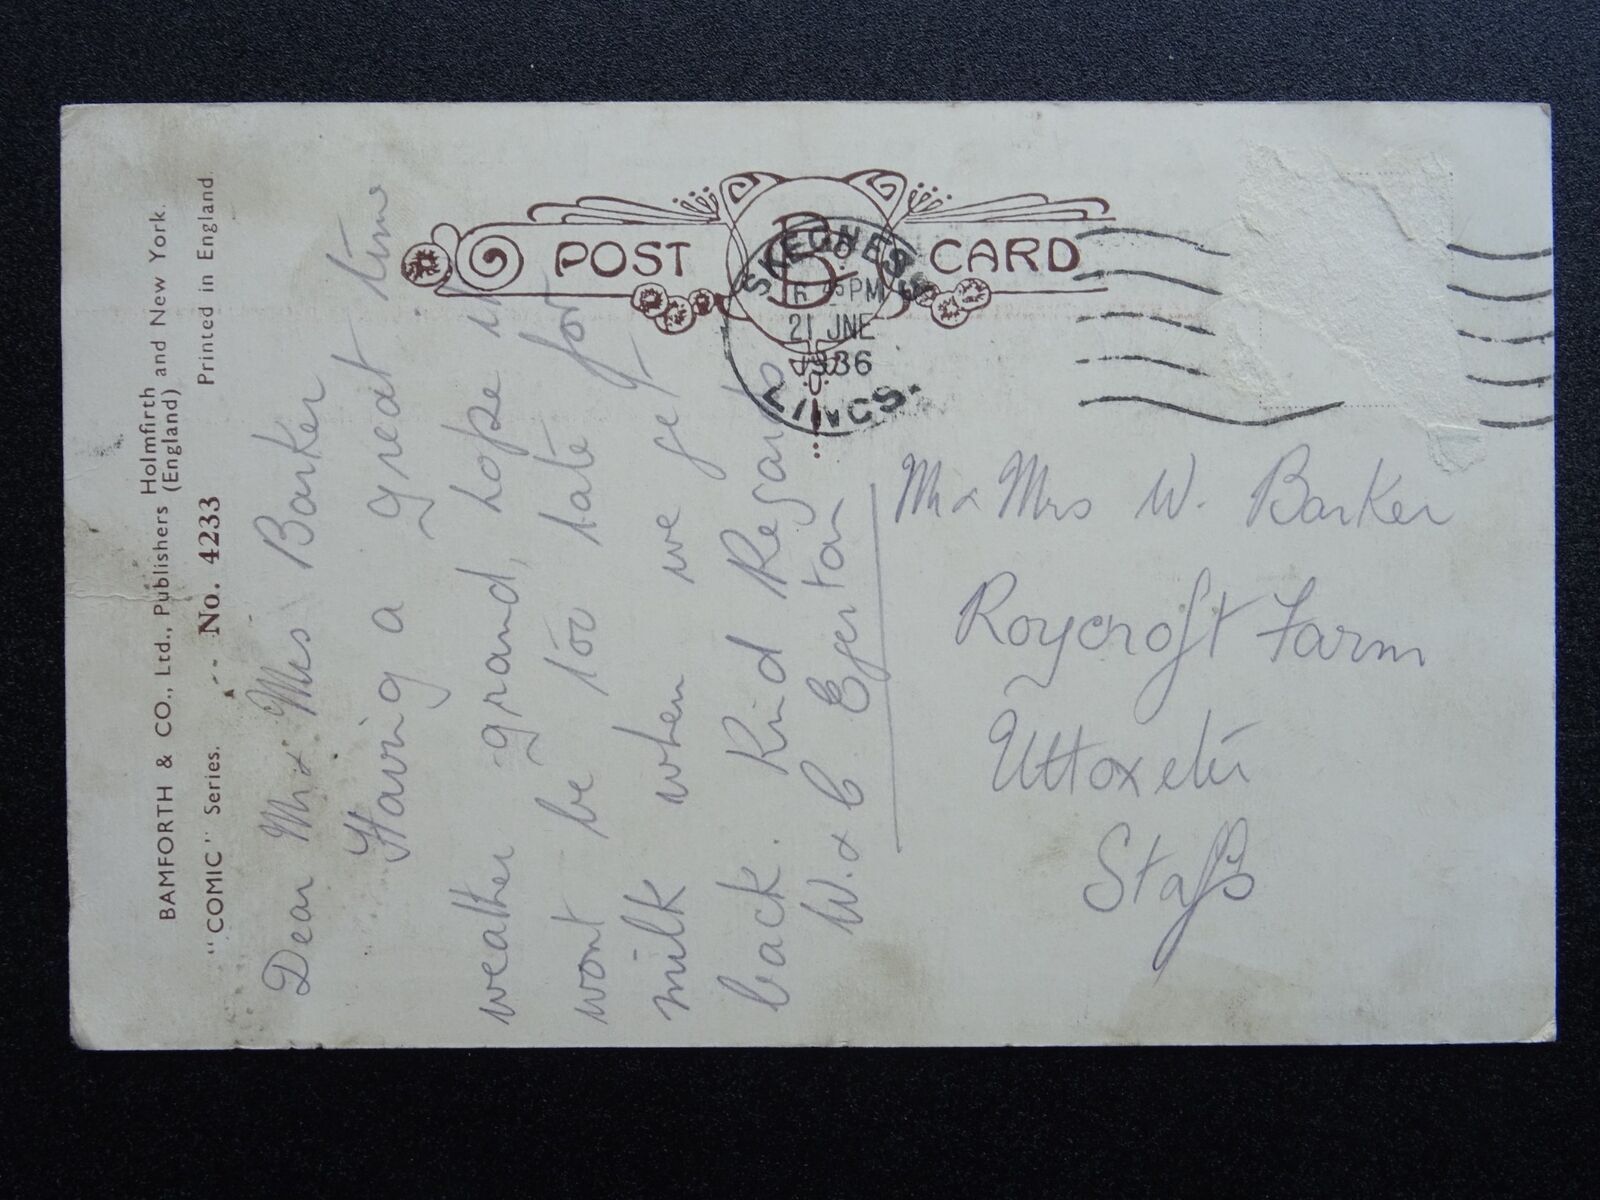 BAMFORTH & CO., Ltd., Publishers Holmfirth (England) and New York.
"COMIC" Series. No. 4233 Printed in England.
POST CARD
B
SKEGNESS
6 PM
21 JNE
1936
LINCS.
Dear Mr & Mrs Barker
Having a great time
weather grand, hope it
wont be too late for
milk when we get
back. Kind Regards
W. & C. Egerton
Mr & Mrs W. Barker
Roycroft Farm
Uttoxeter
Staffs